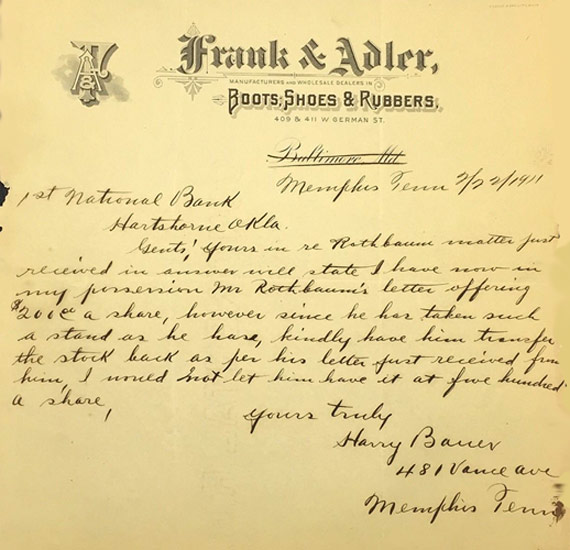 F & A
Frank & Adler,
MANUFACTURERS AND WHOLESALE DEALERS IN
BOOTS, SHOES & RUBBERS,
409 & 411 W GERMAN ST.
Baltimore, Md
Memphis Tenn 2/22/1911
1st National Bank
Hartshorne Okla.
Gents', Yours in re Rothbaum matter just
received in answer will state I have now in
my possession Mr Rothbaum's letter offering
$200 a share, however since he has taken such
a stand as he hase, kindly have him transfer
the stock back as per his letter just received from
him, I would not let him have it at five hundred
a share,
Yours truly
Harry Bauer
481 Vance ave
Memphis Tenn